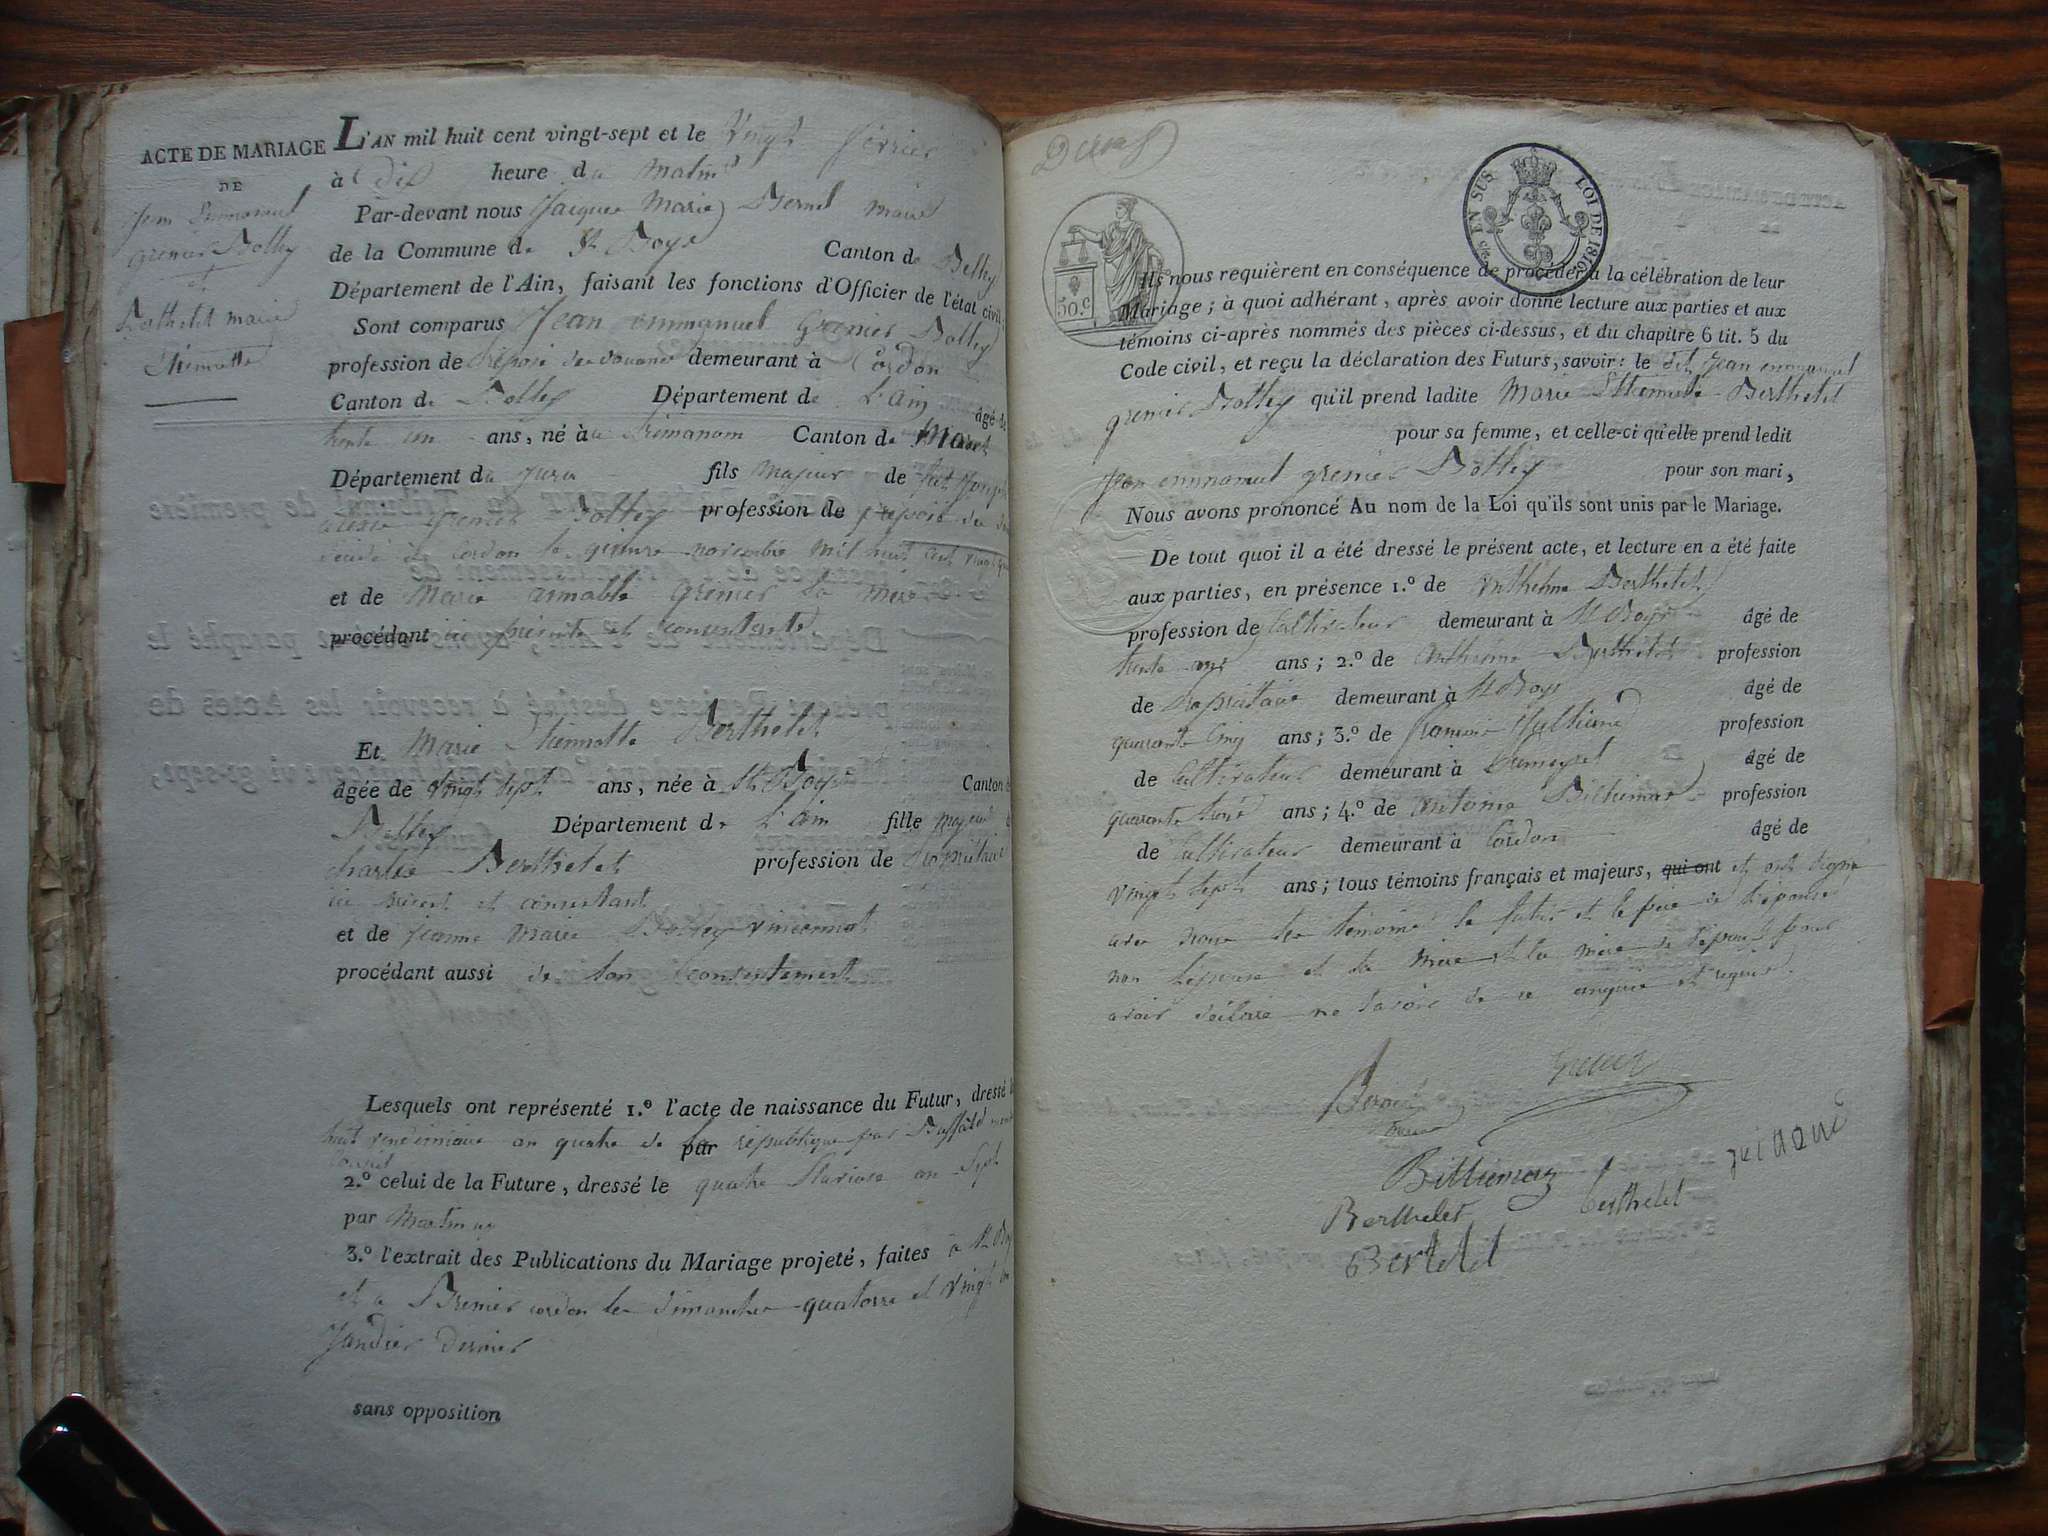 ACTE DE MARIAGE
DE
Jean Emmanuel
grenier Bolley
et
Berthelet marie
Thiennette
L'AN mil huit cent vingt-sept et le vingt février
à dix heure du matin
Par-devant nous Jacques Marie Bernel maire
de la Commune de St Boys Canton de Belley
Département de l'Ain, faisant les fonctions d'Officier de l'état civil.
Sont comparus Jean emmanuel grenier Bolley
profession de préposé des douanes demeurant à Cordon
Canton de Belley Département de L'Ain âgé de
trente un ans, né à Canton de
Département du Jura fils majeur de feu Joseph
alexis grenier Bolley profession de préposé des
décédé à Cordon le quinze novembre mil huit cent vingt
et de Marie aimable grenier sa mère
procédant ici présente et consentante
Et Marie Thiennette Berthelet
âgée de vingt sept ans, née à St Boys Canton de
Belley Département de L'ain fille majeure de
charles Berthelet profession de propriétaire
ici présent et consentant
et de jeanne marie Bolley vincennot
procédant aussi de son consentement
Lesquels ont représenté 1.º l'acte de naissance du Futur, dressé le
huit vendémiaire an quatre de la par république par
2.º celui de la Future, dressé le quatre an sept
par Martin
3.º l'extrait des Publications du Mariage projeté, faites à St Boys
et à Brenier cordon les dimanches quatorze et vingt un
Janvier dernier
sans opposition
50.C
EN SUS LOI DE 1816
Ils nous requièrent en conséquence de procéder à la célébration de leur
Mariage; à quoi adhérant, après avoir donné lecture aux parties et aux
témoins ci-après nommés des pièces ci-dessus, et du chapitre 6 tit. 5 du
Code civil, et reçu la déclaration des Futurs, savoir: le dit Jean emmanuel
grenier Bolley qu'il prend ladite Marie Thiennette Berthelet
pour sa femme, et celle-ci qu'elle prend ledit
Jean emmanuel grenier Bolley pour son mari,
Nous avons prononcé Au nom de la Loi qu'ils sont unis par le Mariage.
De tout quoi il a été dressé le présent acte, et lecture en a été faite
aux parties, en présence 1.º de Anthelme Berthelet
profession de Cultivateur demeurant à St Boys âgé de
trente ans; 2.º de anthelme Berthelet profession
de propriétaire demeurant à St Boys âgé de
quarante cinq ans; 3.º de françois profession
de Cultivateur demeurant à Premeyzel âgé de
quarante ans; 4.º de antoine Billiemaz profession
de Cultivateur demeurant à Cordon âgé de
vingt sept ans; tous témoins français et majeurs, qui ont et ont signé
avec nous les témoins le futur et le père de l'épouse
non l'épouse et sa mère et la mère de l'époux pour
avoir déclaré ne savoir de ce enquis et requis.
Bernel
maire
grenier
Billiemaz
Berthelet berthelet
Bertelet